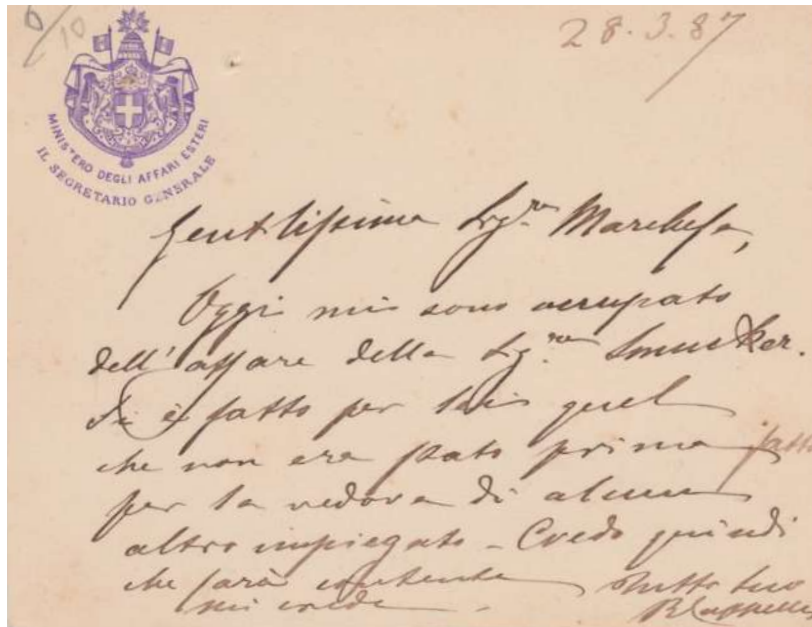 6/10
28.3.87
MINISTERO DEGLI AFFARI ESTERI
IL SEGRETARIO GENERALE
Gentilissima Sig.ra Marchesa,
Oggi mi sono occupato
dell'affare della Sig.ra Smucker.
Si è fatto per lei quel
che non era stato prima fatto
per la vedova di alcun
altro impiegato - Credo quindi
che sarà contenta
mi creda - Tutto suo
RCappelli